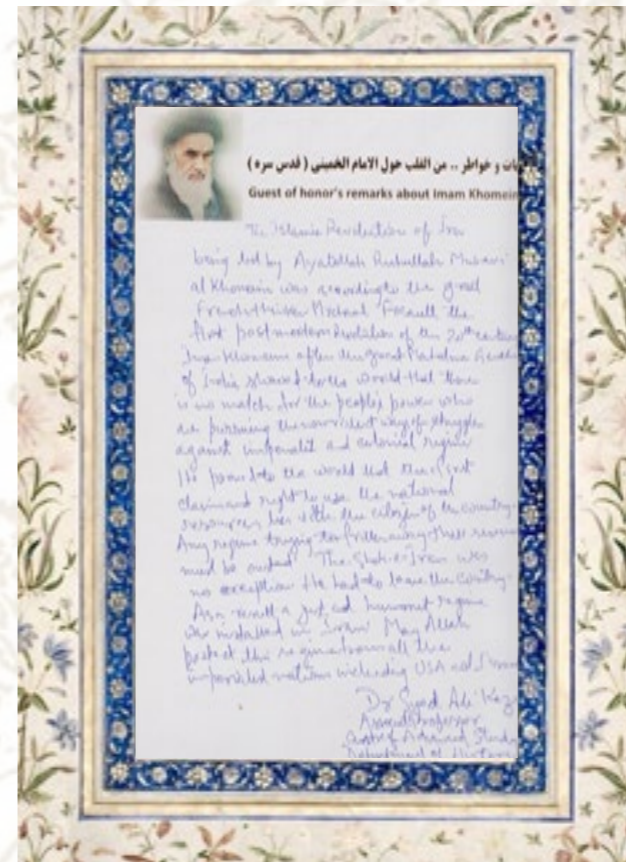 و خواطر .. من القلب حول الامام الخميني ( قدس سره )
Guest of honor's remarks about Imam Khomein
The Islamic Revolution of Iran
being led by Ayatollah Ruhullah Musavi
al Khomeini was according to the great
French thinker Michael Foucault the
first post modern Revolution of the 20th century
Imam Khomeini after the great Mahatma Gandhi
of India showed to the world that there
is no match for the people's power who
are pursuing the nonviolent way of struggle
against imperialist and colonial regime
He proved to the world that the first
claim and right to use the national
resources lies with the citizen of the country.
Any regime trying to these resources
must be ousted. The Shah-e-Iran was
no exception. He had to leave the country.
As a result a just and humanist regime
was installed in Iran. May Allah
protect this regime from all the
imperialist nations including USA and
Dr Syed Ali
Assistant Professor
Centre of Advanced Study
Department of History